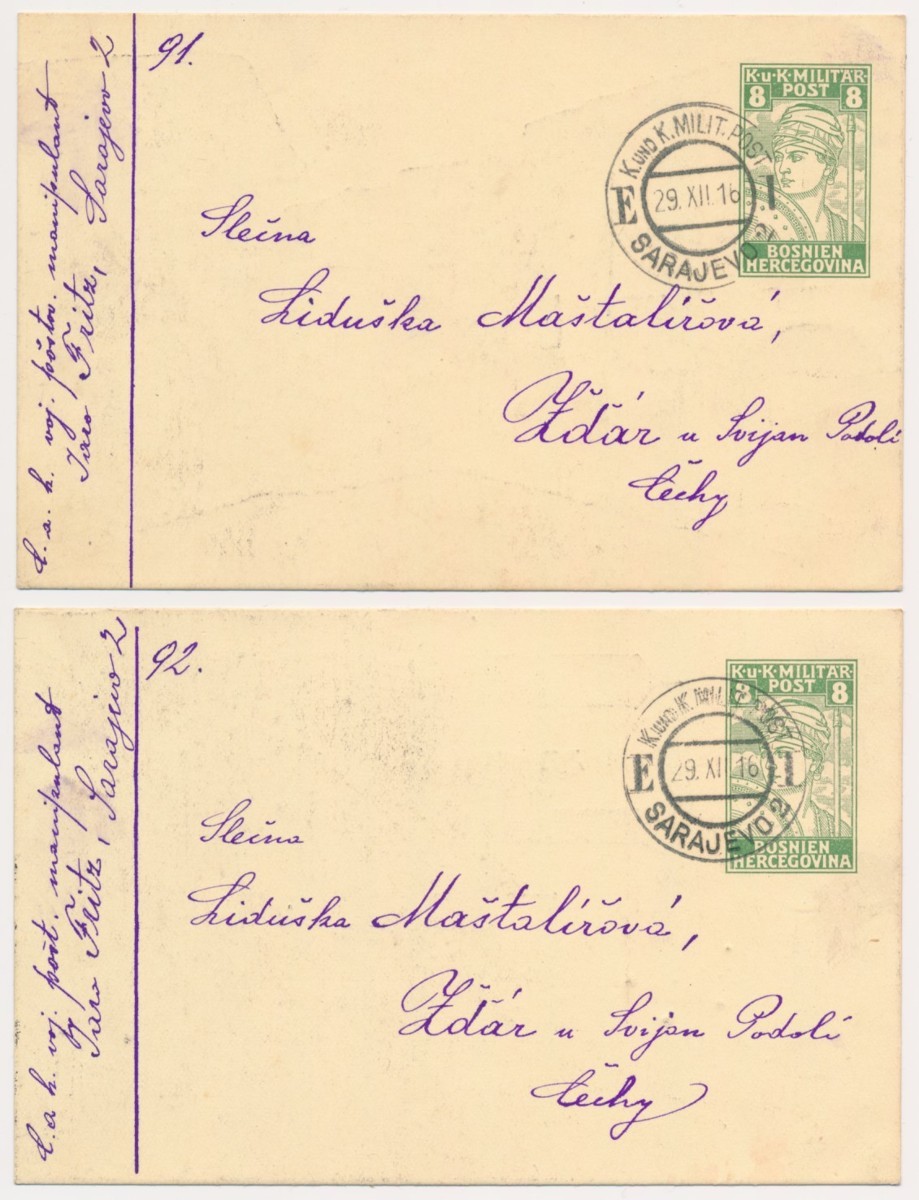 91.
C. a. k. voj. poštov. manipulant
Jaro Fritz, Sarajevo 2
K·u·K·MILITÄR·
POST
8 8
BOSNIEN
HERCEGOVINA
K. UND K. MILIT. POST
E 29. XII. 16 1
SARAJEVO 2
Slečna
Liduška Maštalířová,
Žďár u Svijan Podolí
Čechy
92.
C. a k. voj. pošt. manipulant
Jaro Fritz, Sarajevo 2
K·u·K·MILITÄR·
POST
8 8
BOSNIEN
HERCEGOVINA
K. UND K. MILIT. POST
E 29. XII. 16 1
SARAJEVO 2
Slečna
Liduška Maštalířová,
Žďár u Svijan Podolí
Čechy